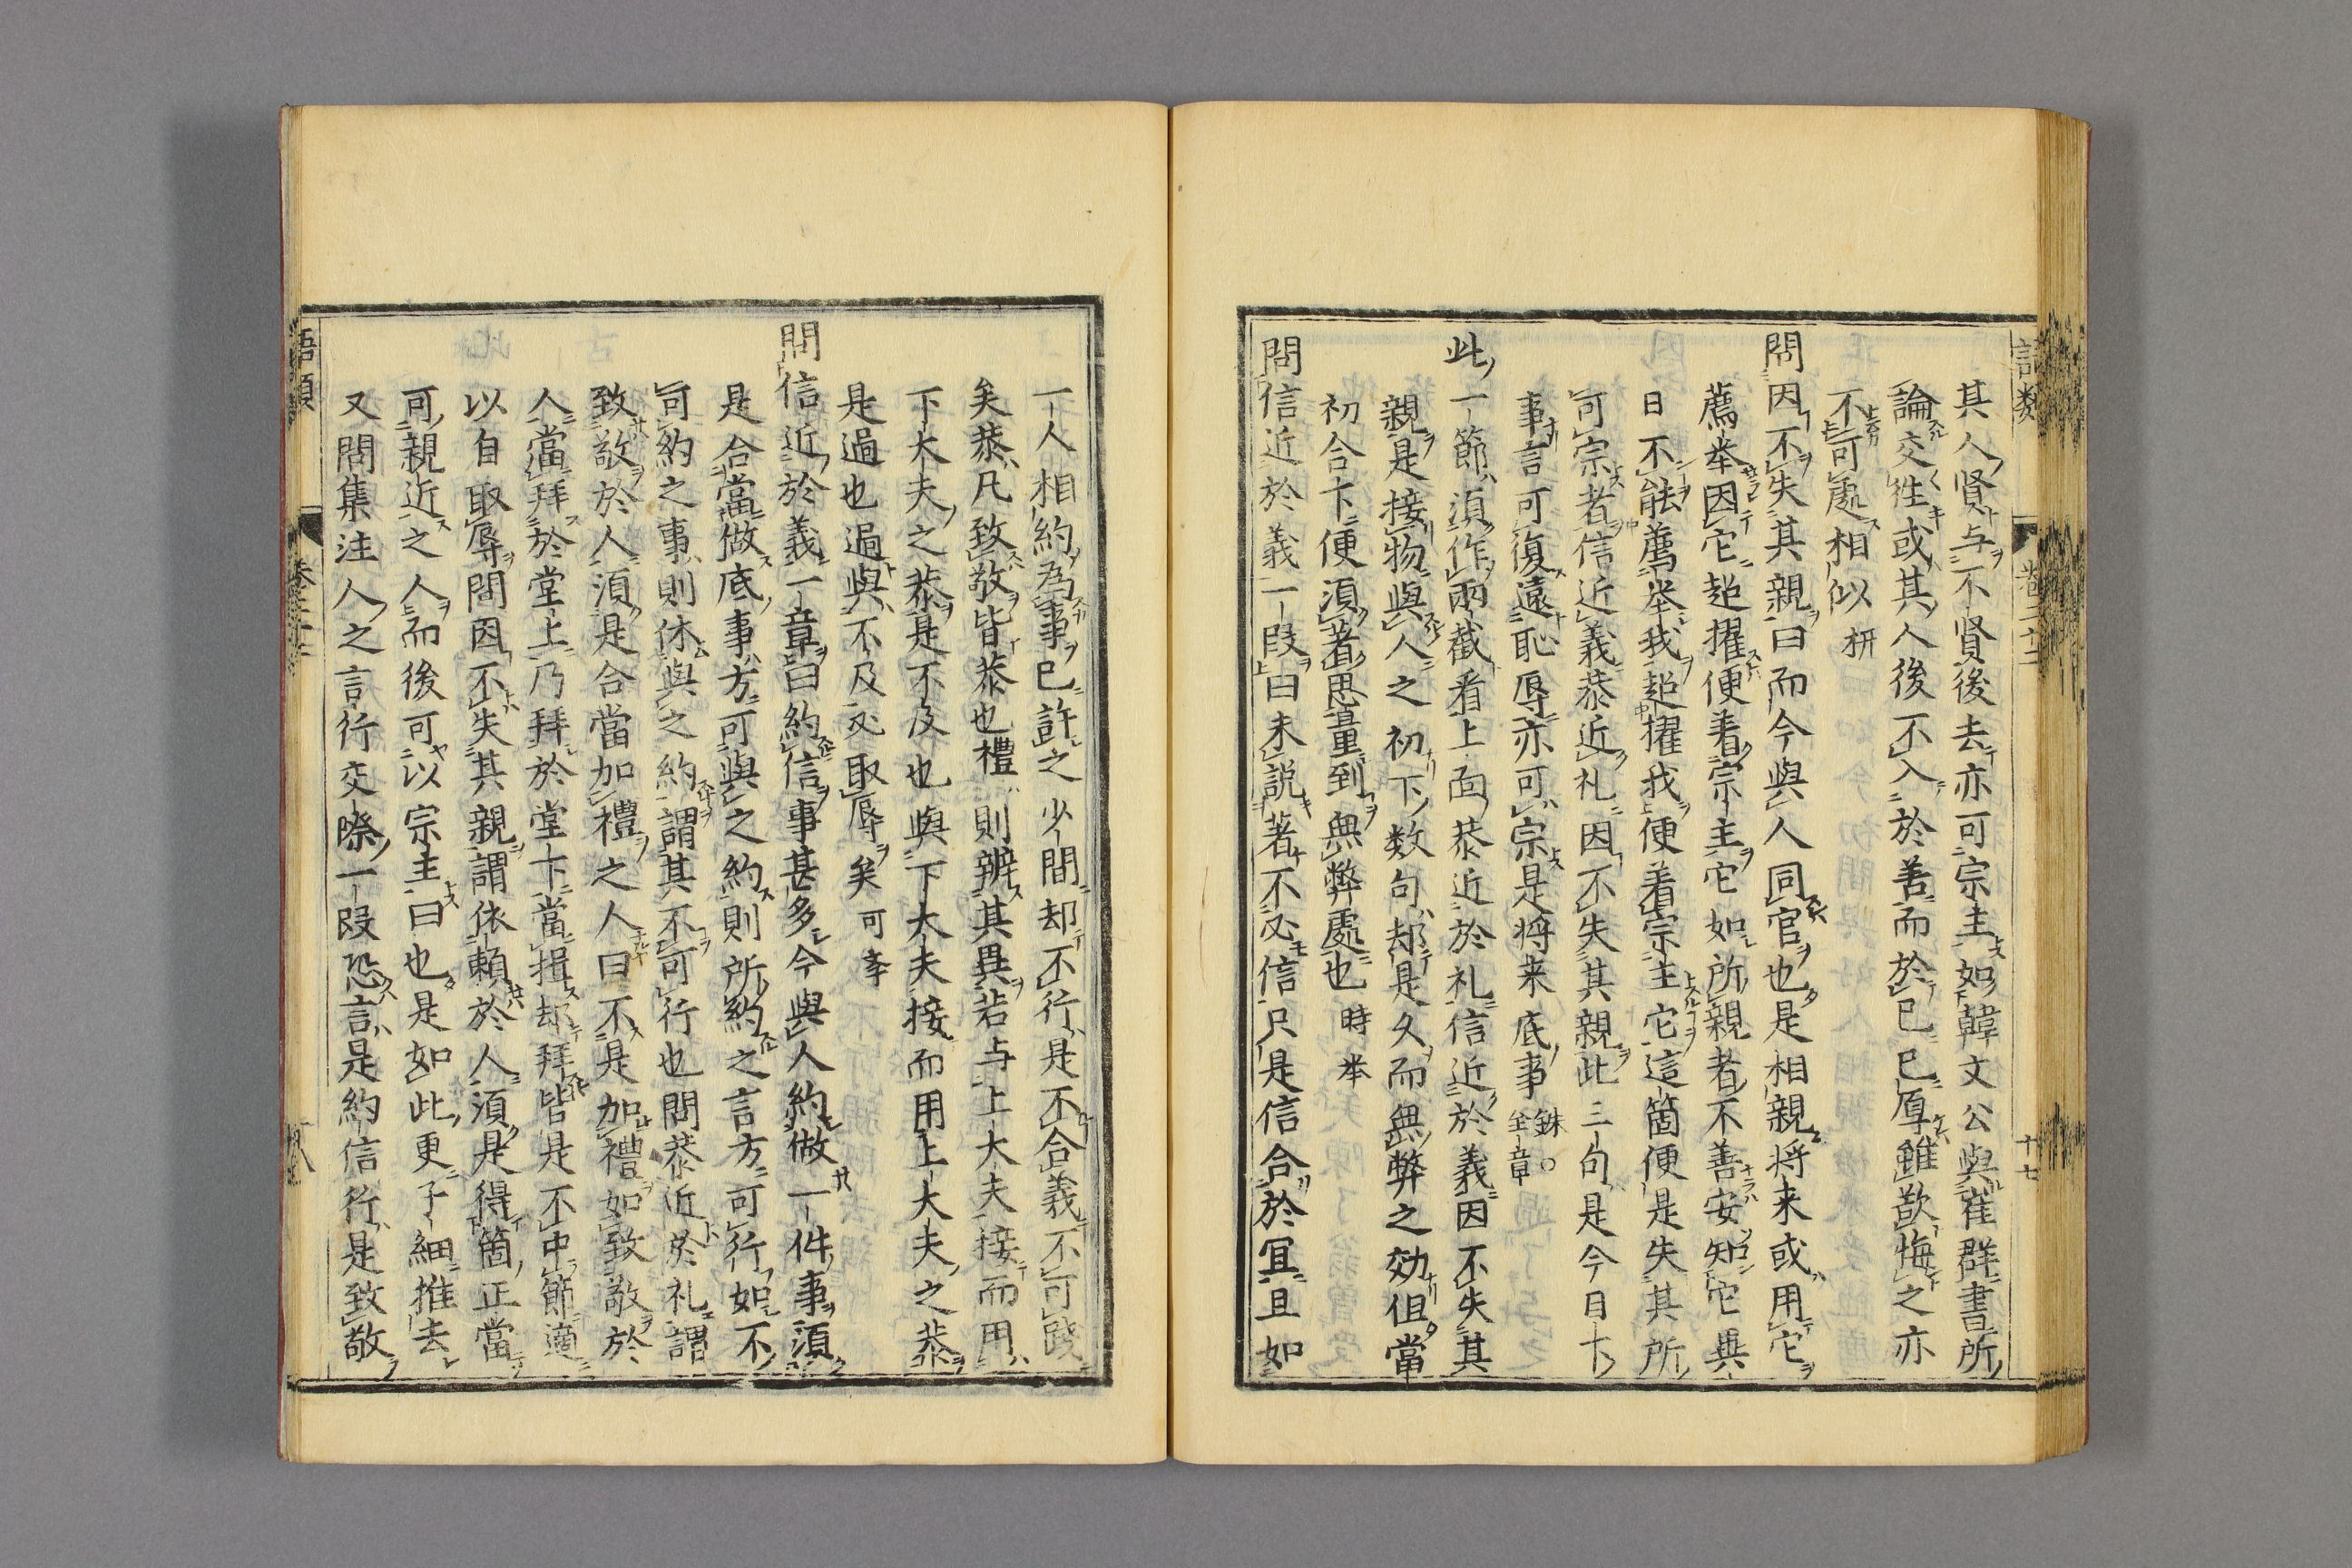 語類
卷二十二
十七
其人賢与不賢後去亦可宗主如韓文公與崔群書所
論交徃或其人後不入於善而於已已厚雖欲悔之亦
不可處相似枅
問因不失其親曰而今與人同官也是相親将来或用它
薦举因它超擢便着宗主它如所親者不善安知它異
日不能薦举我超擢我便着宗主它這箇便是失其所
可宗者信近義恭近礼因不失其親此三句是今日下
事言可復遠恥辱亦可宗是将来底事銖○全章
此一節須作兩截看上面恭近於礼信近於義因不失其
親是接物與人之初下数句却是久而無弊之効但當
初合下便須著思量到無弊處也時举
問信近於義一段曰未説著不必信只是信合於冝且如
一人相約為事已許之少間却不行是不合義不可踐
矣恭凡致敬皆恭也禮則辨其異若与上大夫接而用
下大夫之恭是不及也與下大夫接而用上大夫之恭
是過也過與不及必取辱矣可孝
問信近於義一章曰約信事甚多今與人約做一件事須
是合當做底事方可與之約則所約之言方可行如不
可約之事則休與之約謂其不可行也問恭近於礼謂
致敬於人須是合當加禮之人曰不是加禮如致敬於
人當拜於堂上乃拜於堂下當揖却拜皆是不中節適
以自取辱問因不失其親謂依賴於人須是得箇正當
可親近之人而後可以宗主曰也是如此更子細推去
又問集注人之言行交際一段恐言是約信行是致敬
語類
卷二十二
十八